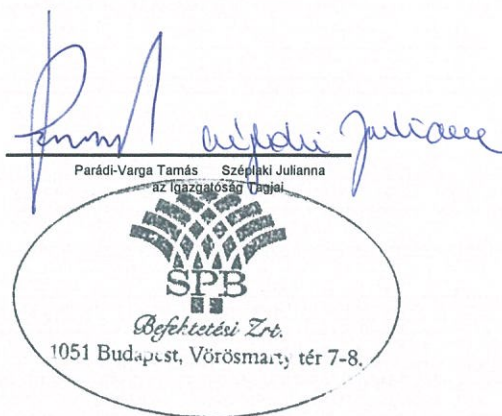 Parádi-Varga Tamás Széplaki Julianna
az Igazgatóság tagjai
SPB
Befektetési Zrt.
1051 Budapest, Vörösmarty tér 7-8.